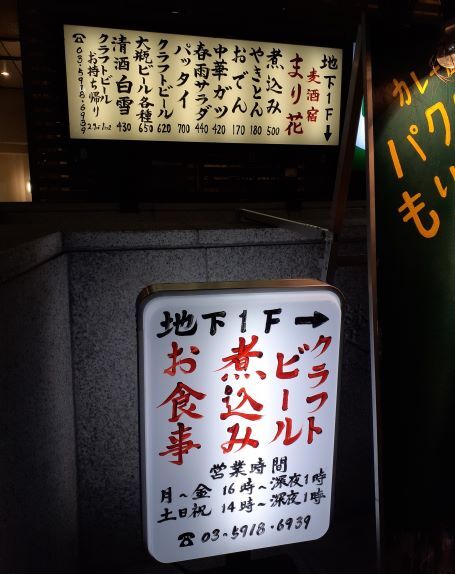 地下1F↓
麦酒宿
まり花
煮込み 500
やきとん 180
おでん 170
中華ガツ 420
春雨サラダ 440
パッタイ 700
クラフトビール 620
大瓶ビール各種 650
清酒白雪 430
クラフトビール
お持ち帰り
☎03-5918-6939
カレー
パク
もり
地下1F→
クラフト
ビール
煮込み
お食事
営業時間
月~金 16時~深夜1時
土日祝 14時~深夜1時
☎03-5918-6939